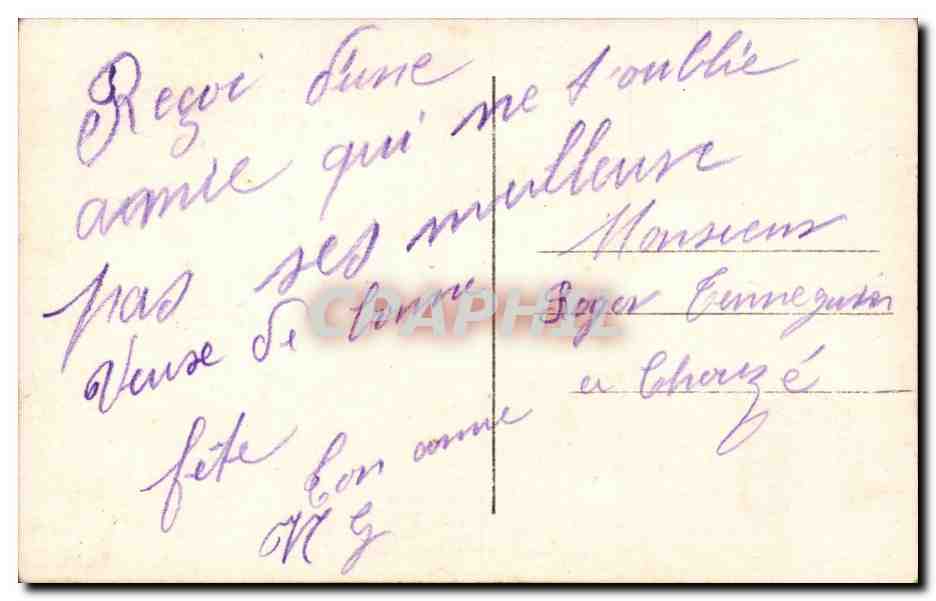 Reçoi d'une
amie qui ne t'oublie
pas ses meilleuse
Veuse de bonne
fête
ton amie
N G
Monsieur
Roger Tenneguin
a Chouzé
CRAPHIL